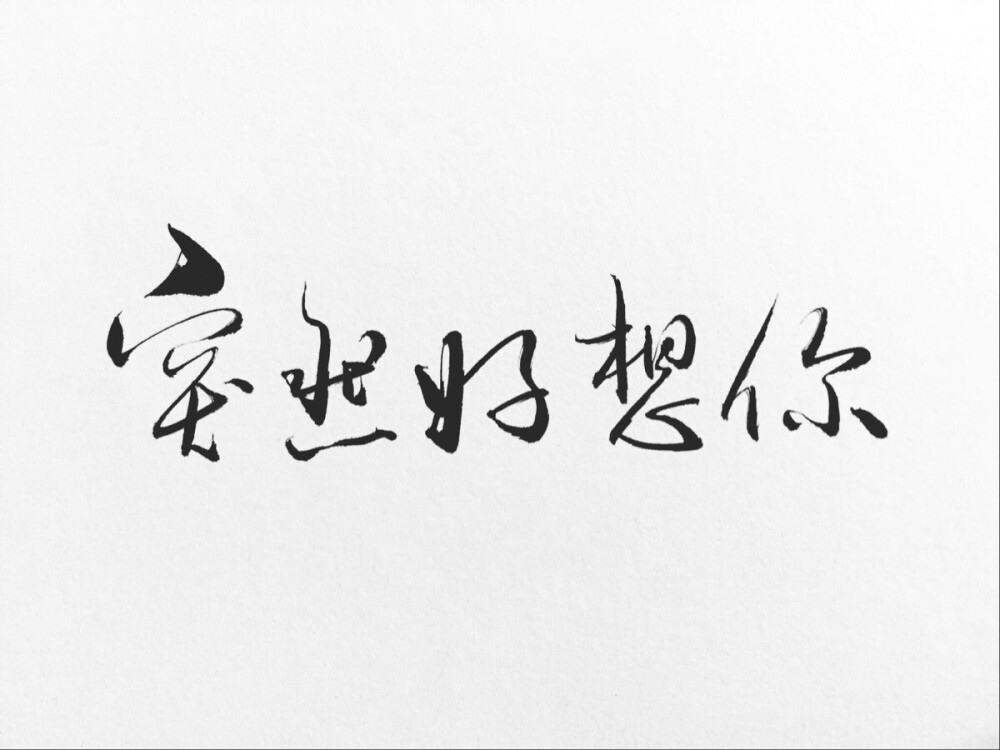 突然好想你